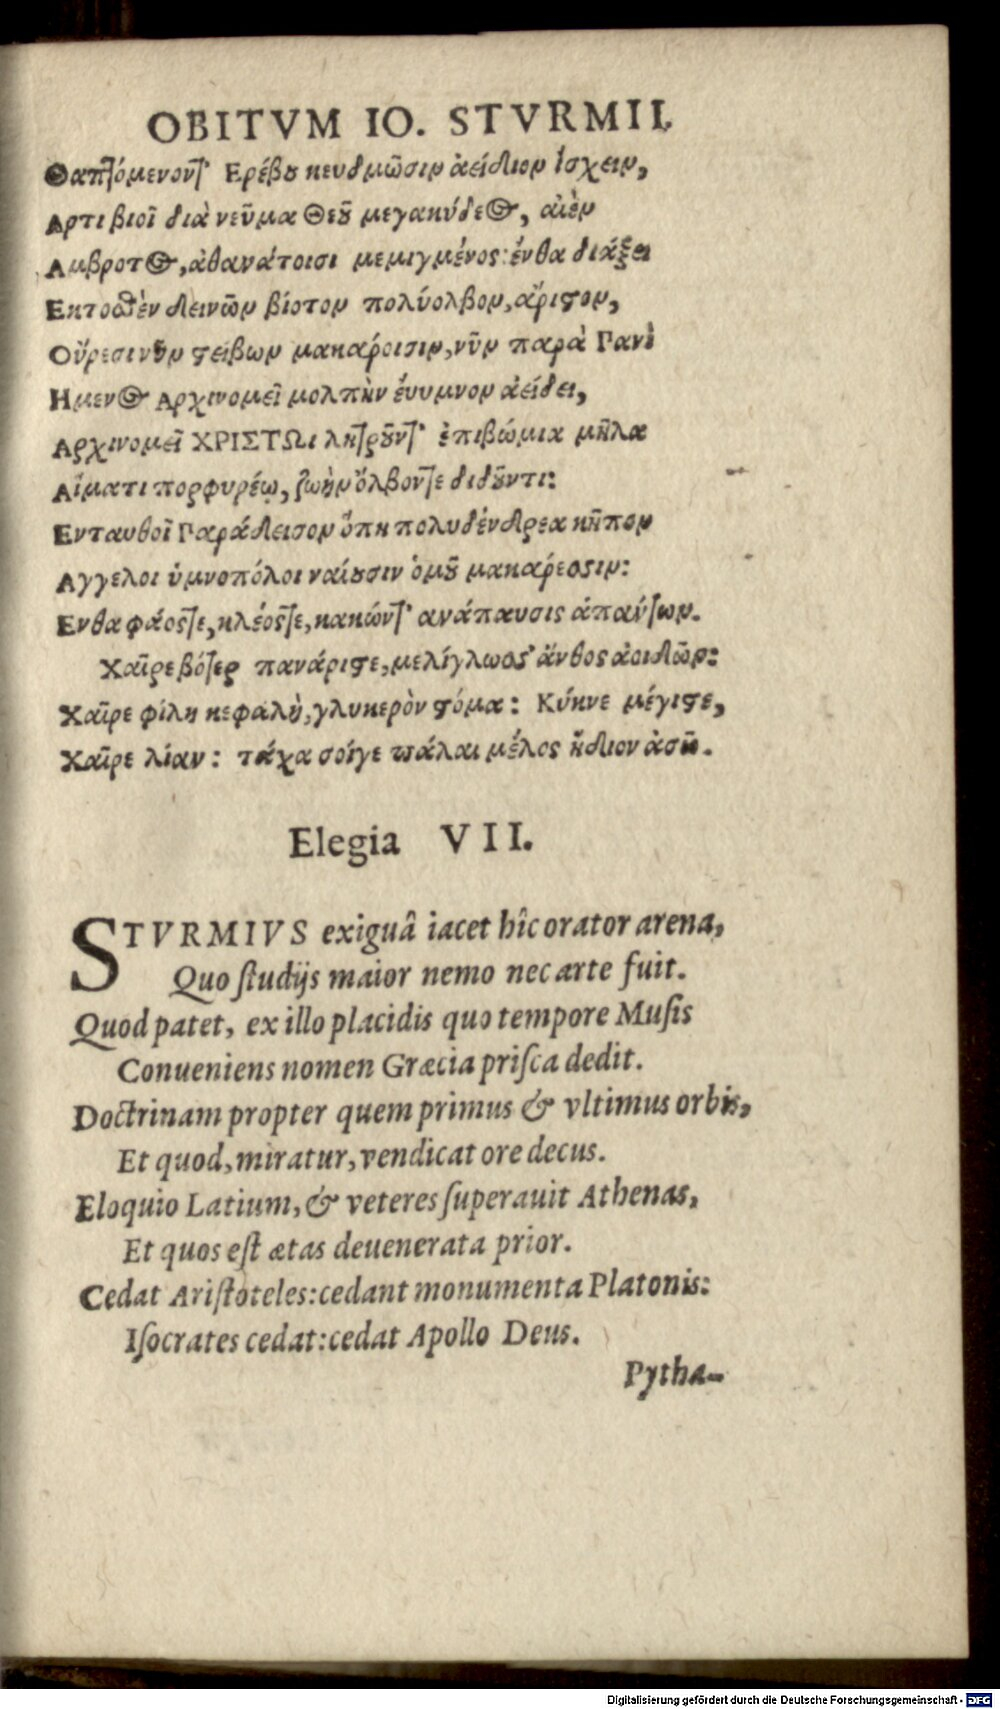 OBITVM IO. STVRMII.
Θαπτόμενόντ' Ερέβου κευθμῶσιν ἀείδιον ἴσχειν,
Αρτιβιοῖ διὰ νεῦμα Θεοῦ μεγακύδεος, αἰὲν
Αμβροτος, ἀθανάτοισι μεμιγμένος: ἔνθα διάξει
Εκτοθεν δεινῶν βίοτον πολύολβον, ἄριστον,
Οὔρεσι νῦν στείβων μακάροισιν, νῦν παρὰ Γανὶ
Ημενος Αρχινομεῖ μολπὴν ἔυυμνον ἀείδει,
Αρχινομεῖ ΧΡΙΣΤΩι λητροῦντ' ἐπιβώμια μῆλα
Αἵματι πορφυρέῳ, ζωὴν ὄλβοντε διδοῦντι:
Ενταυθοῖ Γαράδεισον ὅπη πολυδένδρεα κῆπον
Αγγελοι ὑμνοπόλοι ναίουσιν ὁμοῦ μακάρεσσιν:
Ενθα φάοστε, κλέοστε, κακώντ' ανάπαυσις ἁπάντων.
Χαῖρε βότερ πανάριστε, μελίγλωσσ' ἄνθος ἀοιδῶν:
Χαῖρε φίλη κεφαλὴ, γλυκερὸν στόμα: Κύκνε μέγιστε,
Χαῖρε λίαν: τάχα σοίγε πάλαι μέλος ἥδιον ἀσῶ.
Elegia VII.
STVRMIVS exiguâ iacet hîc orator arena,
Quo ſtudijs maior nemo nec arte fuit.
Quod patet, ex illo placidis quo tempore Muſis
Conueniens nomen Græcia priſca dedit.
Doctrinam propter quem primus & vltimus orbis,
Et quod, miratur, vendicat ore decus.
Eloquio Latium, & veteres ſuperauit Athenas,
Et quos eſt ætas deuenerata prior.
Cedat Ariſtoteles: cedant monumenta Platonis:
Iſocrates cedat: cedat Apollo Deus.
Pytha-
Digitalisierung gefördert durch die Deutsche Forschungsgemeinschaft - DFG